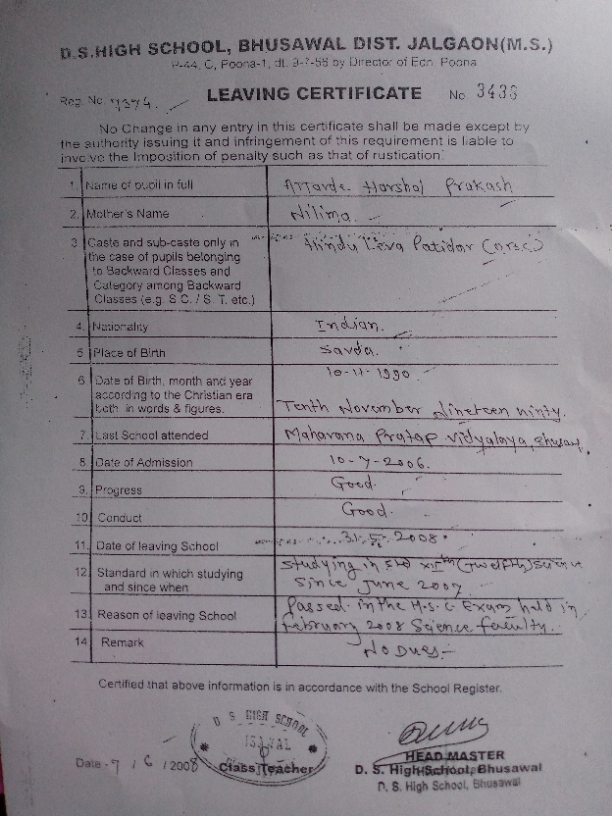 D.S.HIGH SCHOOL, BHUSAWAL DIST. JALGAON(M.S.)
P-44, C, Poona-1, dt. 9-7-56 by Director of Edn. Poona
Reg No. 7374. LEAVING CERTIFICATE No 3433
No Change in any entry in this certificate shall be made except by
the authority issuing it and infringement of this requirement is liable to
involve the Imposition of penalty such as that of rustication.
1. Name of pupil in full Attarde Harshal Prakash
2. Mother's Name Nilima.
3. Caste and sub-caste only in Hindu Leva Patidar (O.B.C.)
the case of pupils belonging
to Backward Classes and
Category among Backward
Classes (e.g. S.C. / S. T. etc.)
4. Nationality Indian.
5 Place of Birth Savda.
6 Date of Birth, month and year 10-11-1990
according to the Christian era
both in words & figures. Tenth November Nineteen ninty.
7. Last School attended Maharana Pratap Vidyalaya,
8. Date of Admission 10-7-2006.
9. Progress Good.
10 Conduct Good.
11. Date of leaving School 31. 5. 2008.
12. Standard in which studying studying in Std XIIth (Twelfth) Science
and since when since June 2007
13. Reason of leaving School Passed in the H.S.C. Exam held in
February 2008 Science faculty.
14 Remark No Dues.-
Certified that above information is in accordance with the School Register.
D. S. HIGH SCHOOL
Date - 7 / 6 / 2008 Class Teacher
HEAD MASTER
D. S. High School, Bhusawal
D. S. High School, Bhusawal